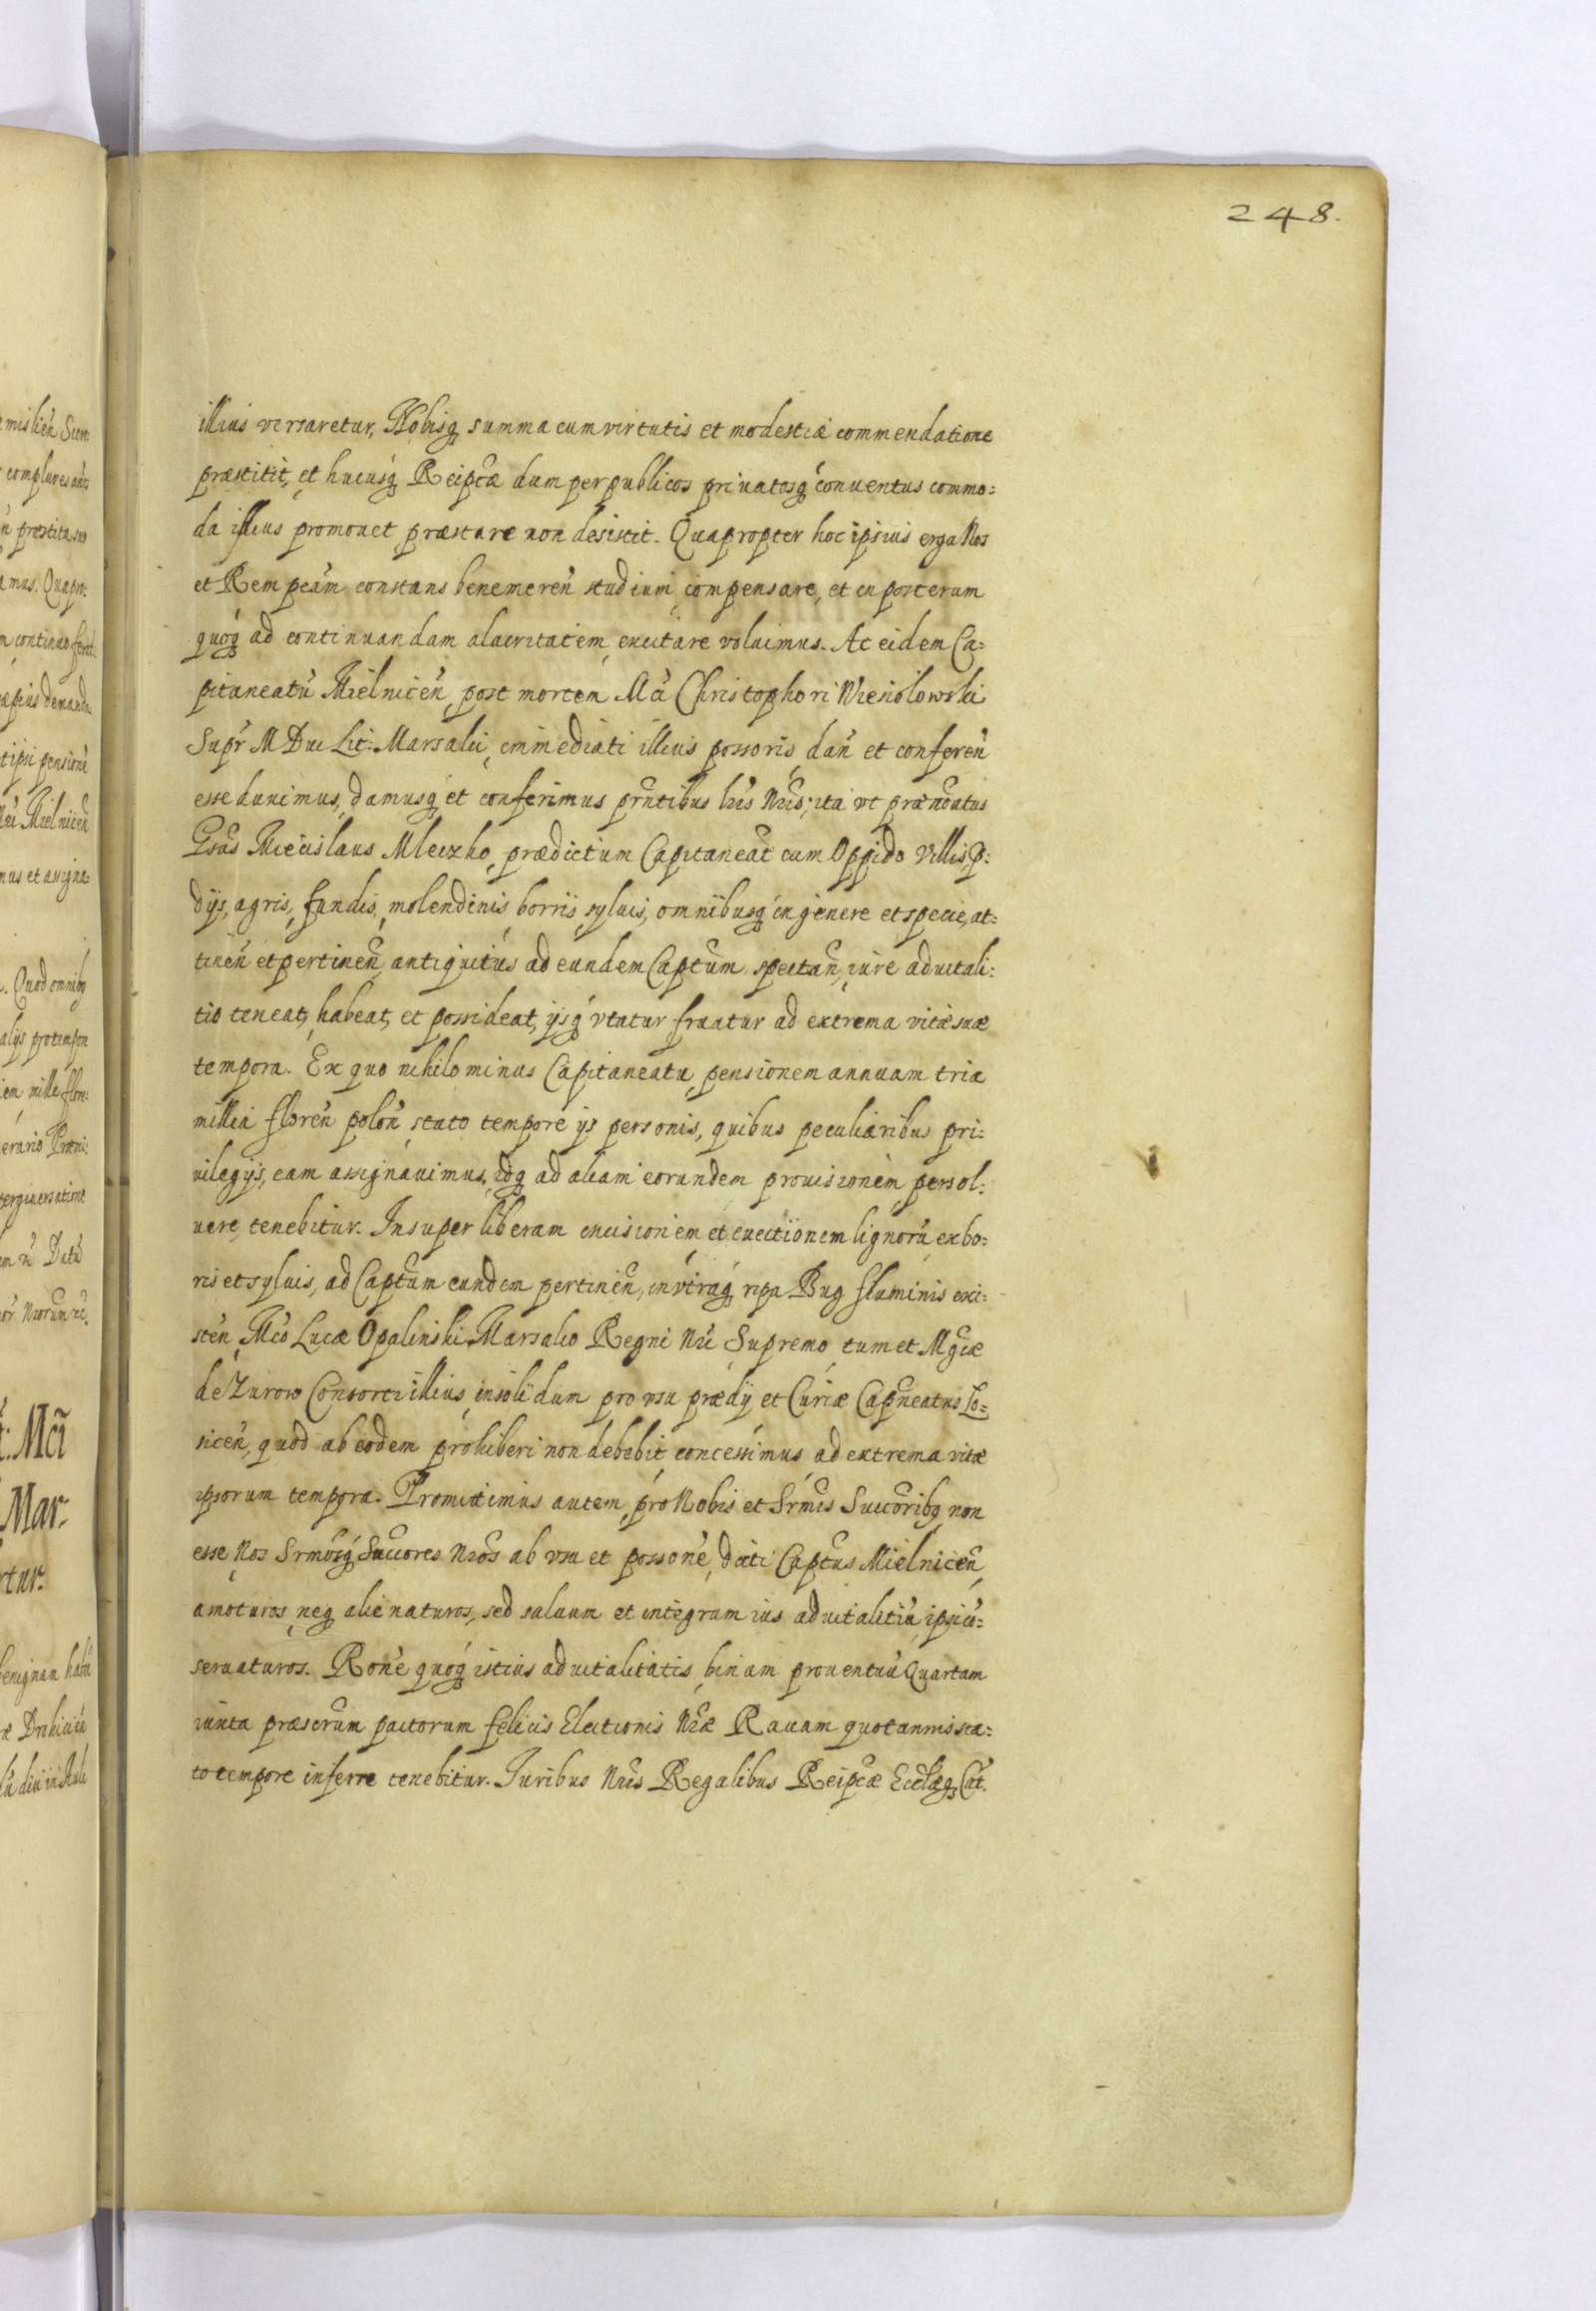 248.
illius versaretur, Nobisq summa cum virtutis et modestiæ commendatione
præstitit, et hucusq Reipcæ dum per publicos priuatosq conuentus commo:
da illius promouet præstare non desistit. Quapropter hoc ipsius erga Nos
et Rempcam constans benemeren studium compensare, et in posterum
quoq ad continuandam alacritatem excitare voluimus. Ac eidem Ca:
pitaneatu Mielnicen post mortem Mci Christophori Wiesiolowski
Supr M Duc Lit: Marsalci, immediati illius possoris dan et conferen
esse duximus, damusq et conferimus prntibus lris Nris; ita vt prænoatus
Gsus Miecislaus Mleczko prædictum Capitaneat cum Oppido Villis, p:
dijs, agris, fundis, molendinis borris syluis, omnibusq in genere et specie, at:
tinen et pertinen antiquitus ad eundem Captum spectan, iure aduitali:
tio teneat, habeat, et possideat, ijsq vtatur fruatur ad extrema vitæ suæ
tempora. Ex quo nihilominus Capitaneatu pensionem annuam tria
millia floren polon stato tempore ijs personis, quibus peculiaribus pri:
uilegijs, eam assignauimus, idq ad aliam eorundem prouisionem persol:
uere tenebitur. Insuper liberam excisionem et euectionem lignoru ex bo:
ris et syluis, ad Captum eundem pertinen, in vtraq ripa Bug fluminis exi:
sten Mco Lucæ Opalinski Marsalco Regni Nri Supremo tum et Mgcæ
de Zurow Consorti illius insolidum pro vsu prædij et Curiæ Capneatus Lo:
sicen, quod ab eodem prohiberi non debebit concessimus ad extrema vitæ
ipsorum tempora. Promittimus autem pro Nobis et Srmis Succoribq non
esse Nos Srmosq Succores Nros ab vsu et possone dicti Captus Mielnicen
amoturos neq alienaturos, sed saluum et integrum ius aduitalitiu ipsi co:
seruaturos. Rone quoq istius aduitalitatis binam prouentuu Quartam
iuxta præscrum pactorum felicis Electionis Nræ Rauam quotannis sta:
to tempore inferre tenebitur. Iuribus Nris Regalibus Reipcæ Ecclæq Cat.